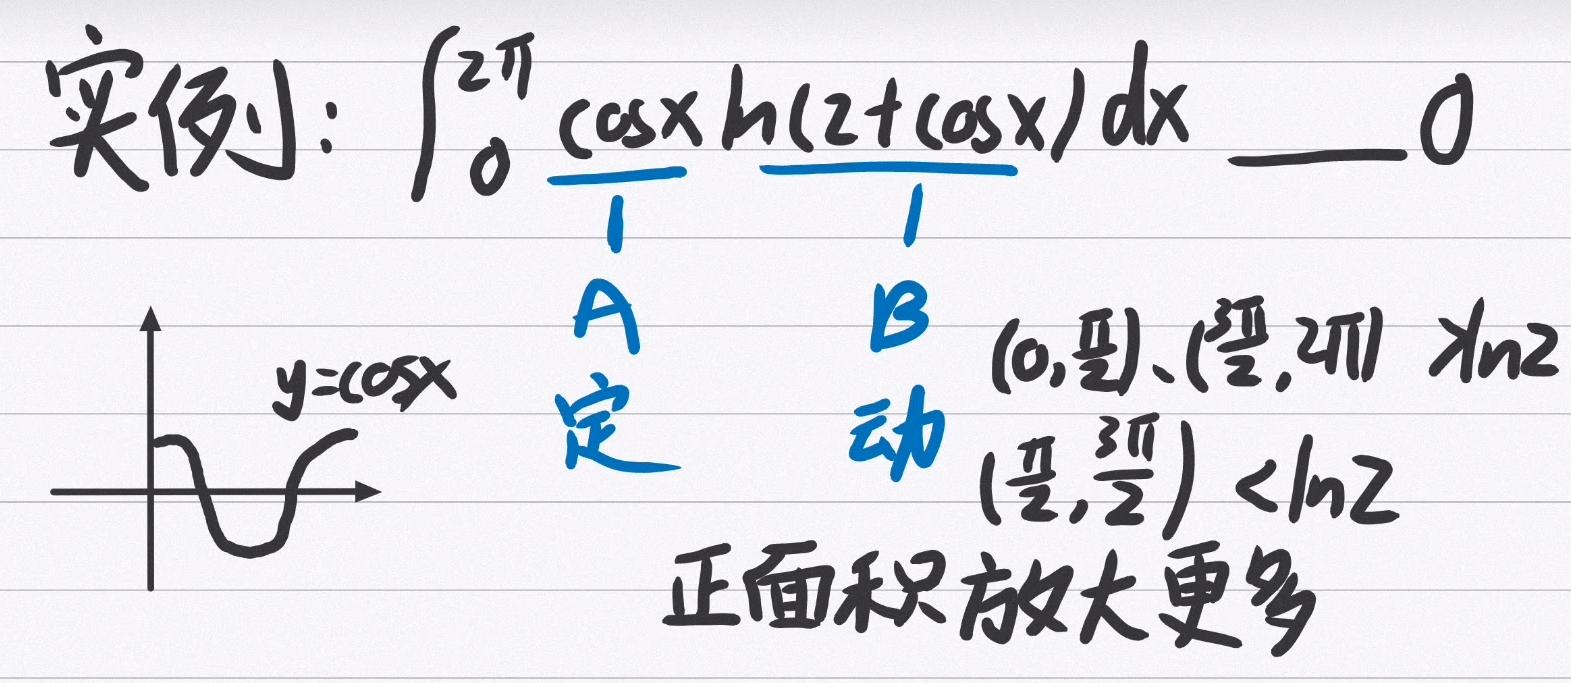 实例: ∫₀^{2π} cosx ln(2+cosx) dx ____ 0
A
B
定
动
y=cosx
(0,π/2)、(3π/2,2π) >ln2
(π/2,3π/2) <ln2
正面积放大更多